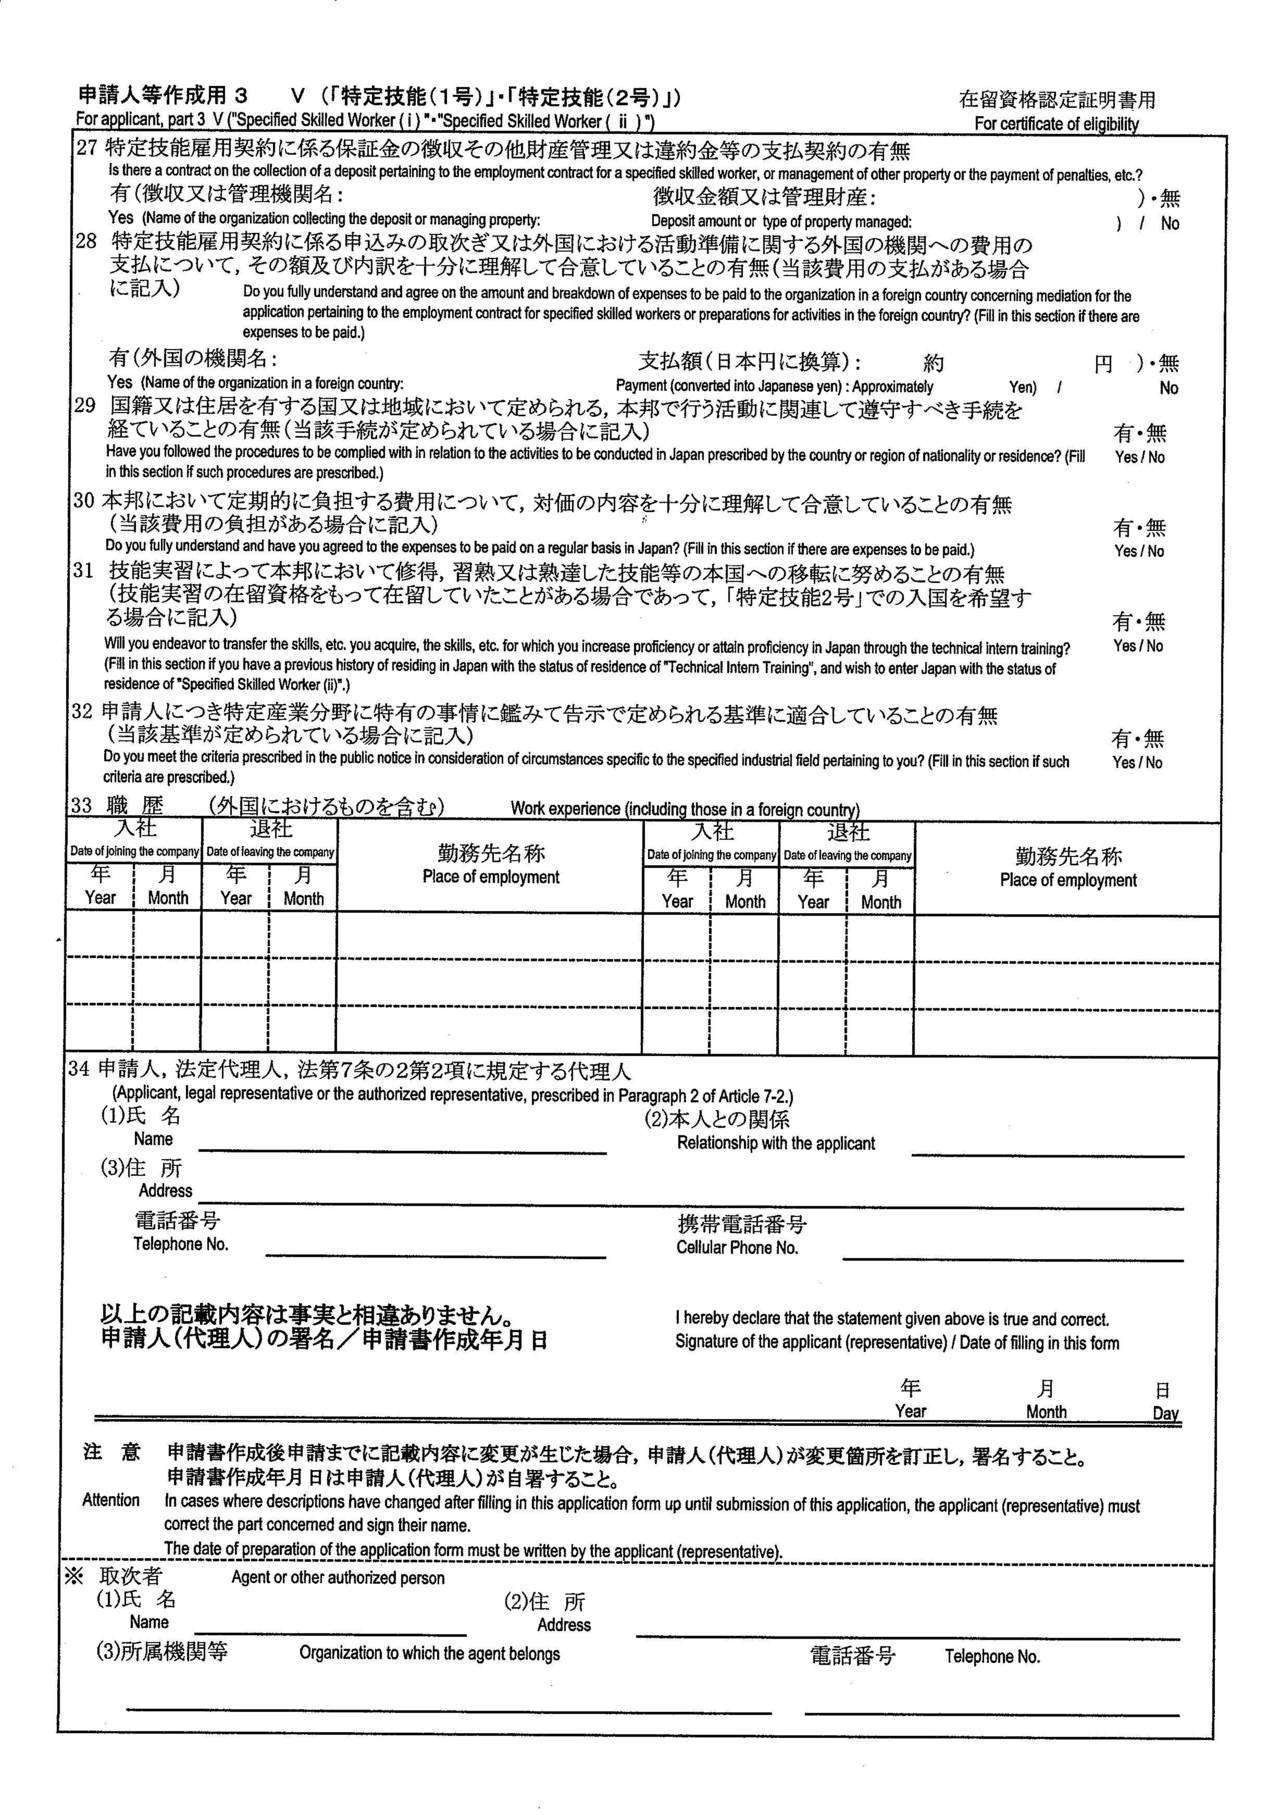 申請人等作成用 3　　V （「特定技能（1号）」・「特定技能（2号）」）
在留資格認定証明書用
For applicant, part 3 V ("Specified Skilled Worker ( i ) "・"Specified Skilled Worker ( ii ) ")
For certificate of eligibility
27 特定技能雇用契約に係る保証金の徴収その他財産管理又は違約金等の支払契約の有無
Is there a contract on the collection of a deposit pertaining to the employment contract for a specified skilled worker, or management of other property or the payment of penalties, etc.?
有（徴収又は管理機関名： 徴収金額又は管理財産： ）・無
Yes (Name of the organization collecting the deposit or managing property: Deposit amount or type of property managed: ) / No
28 特定技能雇用契約に係る申込みの取次ぎ又は外国における活動準備に関する外国の機関への費用の
支払について，その額及び内訳を十分に理解して合意していることの有無（当該費用の支払がある場合
に記入） Do you fully understand and agree on the amount and breakdown of expenses to be paid to the organization in a foreign country concerning mediation for the
application pertaining to the employment contract for specified skilled workers or preparations for activities in the foreign country? (Fill in this section if there are
expenses to be paid.)
有（外国の機関名： 支払額（日本円に換算）： 約 円 ）・無
Yes (Name of the organization in a foreign country: Payment (converted into Japanese yen) : Approximately Yen) / No
29 国籍又は住居を有する国又は地域において定められる，本邦で行う活動に関連して遵守すべき手続を
経ていることの有無（当該手続が定められている場合に記入） 有・無
Have you followed the procedures to be complied with in relation to the activities to be conducted in Japan prescribed by the country or region of nationality or residence? (Fill Yes / No
in this section if such procedures are prescribed.)
30 本邦において定期的に負担する費用について，対価の内容を十分に理解して合意していることの有無
（当該費用の負担がある場合に記入） 有・無
Do you fully understand and have you agreed to the expenses to be paid on a regular basis in Japan? (Fill in this section if there are expenses to be paid.) Yes / No
31 技能実習によって本邦において修得，習熟又は熟達した技能等の本国への移転に努めることの有無
（技能実習の在留資格をもって在留していたことがある場合であって，「特定技能2号」での入国を希望す
る場合に記入） 有・無
Will you endeavor to transfer the skills, etc. you acquire, the skills, etc. for which you increase proficiency or attain proficiency in Japan through the technical intern training? Yes / No
(Fill in this section if you have a previous history of residing in Japan with the status of residence of "Technical Intern Training", and wish to enter Japan with the status of
residence of "Specified Skilled Worker (ii)".)
32 申請人につき特定産業分野に特有の事情に鑑みて告示で定められる基準に適合していることの有無
（当該基準が定められている場合に記入） 有・無
Do you meet the criteria prescribed in the public notice in consideration of circumstances specific to the specified industrial field pertaining to you? (Fill in this section if such Yes / No
criteria are prescribed.)
33 職 歴 （外国におけるものを含む） Work experience (including those in a foreign country)
入社 退社 勤務先名称 入社 退社 勤務先名称
Date of joining the company Date of leaving the company Place of employment Date of joining the company Date of leaving the company Place of employment
年 月 年 月 年 月 年 月
Year Month Year Month Year Month Year Month
34 申請人，法定代理人，法第7条の2第2項に規定する代理人
(Applicant, legal representative or the authorized representative, prescribed in Paragraph 2 of Article 7-2.)
(1)氏 名 (2)本人との関係
Name Relationship with the applicant
(3)住 所
Address
電話番号 携帯電話番号
Telephone No. Cellular Phone No.
以上の記載内容は事実と相違ありません。 I hereby declare that the statement given above is true and correct.
申請人（代理人）の署名／申請書作成年月日 Signature of the applicant (representative) / Date of filling in this form
年 月 日
Year Month Day
注 意 申請書作成後申請までに記載内容に変更が生じた場合，申請人（代理人）が変更箇所を訂正し，署名すること。
申請書作成年月日は申請人（代理人）が自署すること。
Attention In cases where descriptions have changed after filling in this application form up until submission of this application, the applicant (representative) must
correct the part concerned and sign their name.
The date of preparation of the application form must be written by the applicant (representative).
※ 取次者 Agent or other authorized person
(1)氏 名 (2)住 所
Name Address
(3)所属機関等 Organization to which the agent belongs 電話番号 Telephone No.